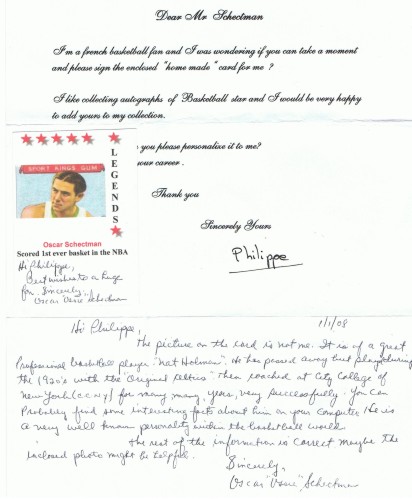 Dear Mr Schectman
I'm a french basketball fan and I was wondering if you can take a moment
and please sign the enclosed "home made" card for me ?
I like collecting autographs of Basketball star and I would be very happy
to add yours to my collection.
you please personalize it to me?
your career .
Thank you
Sincerely Yours
Philippe
LEGENDS
SPORT KINGS GUM
Oscar Schectman
Scored 1st ever basket in the NBA
Hi Philippe,
Best wishes to a huge
fan. Sincerely,
Oscar "Ossie" Schectman
1/1/08
Hi Philippe,
The picture on the card is not me. It is of a great
Professional basketball player "Nat Holman". He has passed away but played during
the 1920's with the "Original Celtics" Then coached at City College of
New York (CCNY) for many many years, very successfully. You can
Probably find some interesting facts about him on your computer. He is
a very well known personality within the basketball world.
The rest of the information is correct maybe the
inclosed photo might be helpful.
Sincerely,
Oscar "Ossie" Schectman